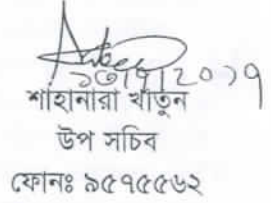 শাহানারা খাতুন
উপ সচিব
ফোনঃ ৯৫৭৫৫৬২